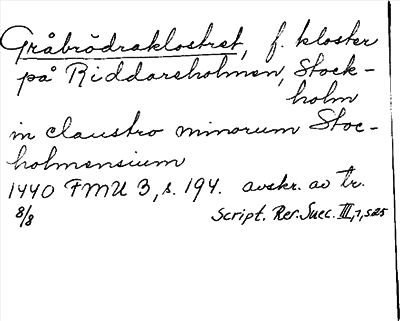 Gråbrödraklostret, f. kloster
på Riddarsholmen, Stock-
holm
in claustro minorum Stoc-
holmensium
1440 FMU 3, s. 194. avskr. av tr.
8/8 Script. Rer. Suec. III, 1, s 25